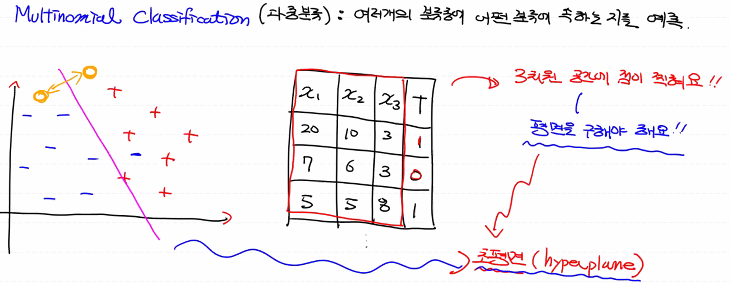 Multinomial Classification (다중분류) : 여러개의 분류중에 어떤 분류에 속하는지를 예측.
x₁ x₂ x₃ T
20 10 3 1
7 6 3 0
5 5 8 1
3차원 공간에 점이 찍혀요!!
평면을 구해야 해요!!
초평면 (hyperplane)